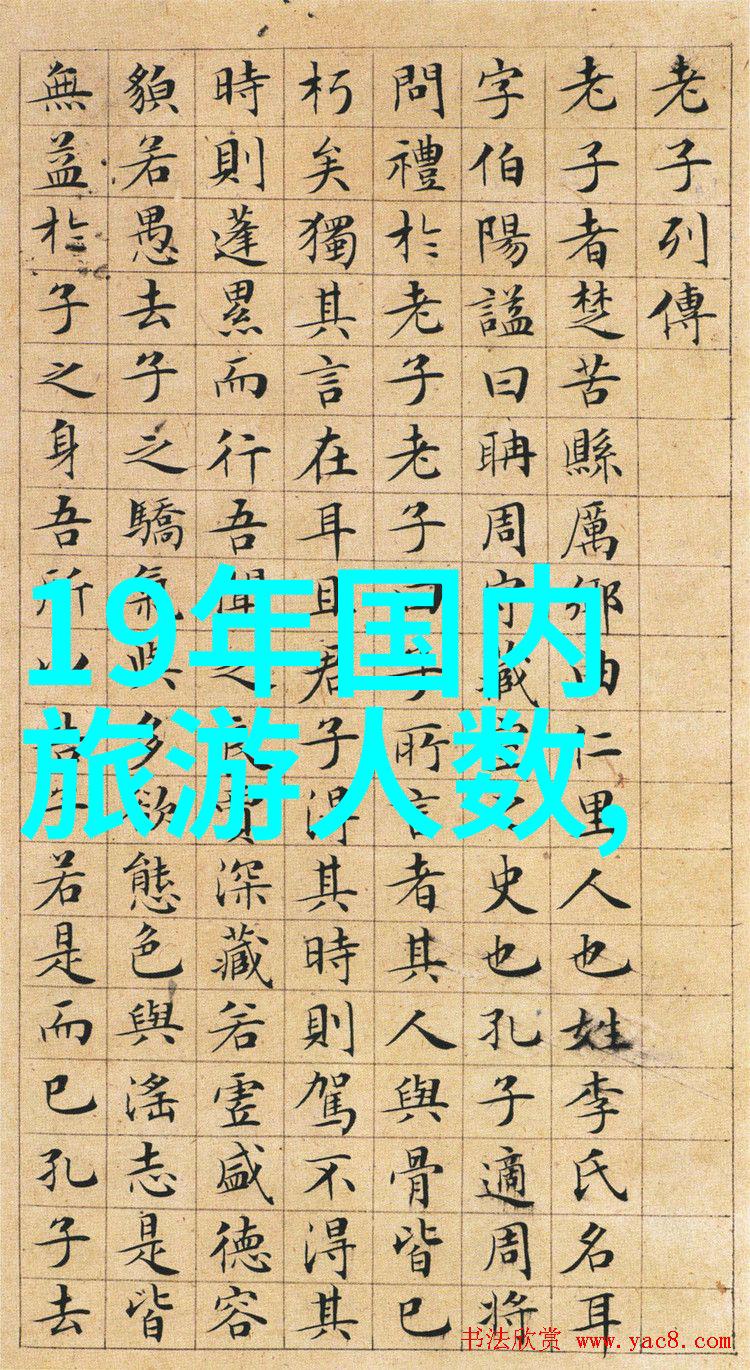 老子列傳
老子者楚苦縣厲鄉曲仁里人也姓李氏名耳
字伯陽謚曰聃周守藏室之史也孔子適周將
問禮於老子老子曰子所言者其人與骨皆已
朽矣獨其言在耳且君子得其時則駕不得其
時則蓬累而行吾聞之良賈深藏若虛盛德容
貌若愚去子之驕氣與多欲態色與滛志是皆
無益於子之身吾所以告子若是而已孔子去
19年国内
旅游人数,
书法欣赏 www.yac8.com